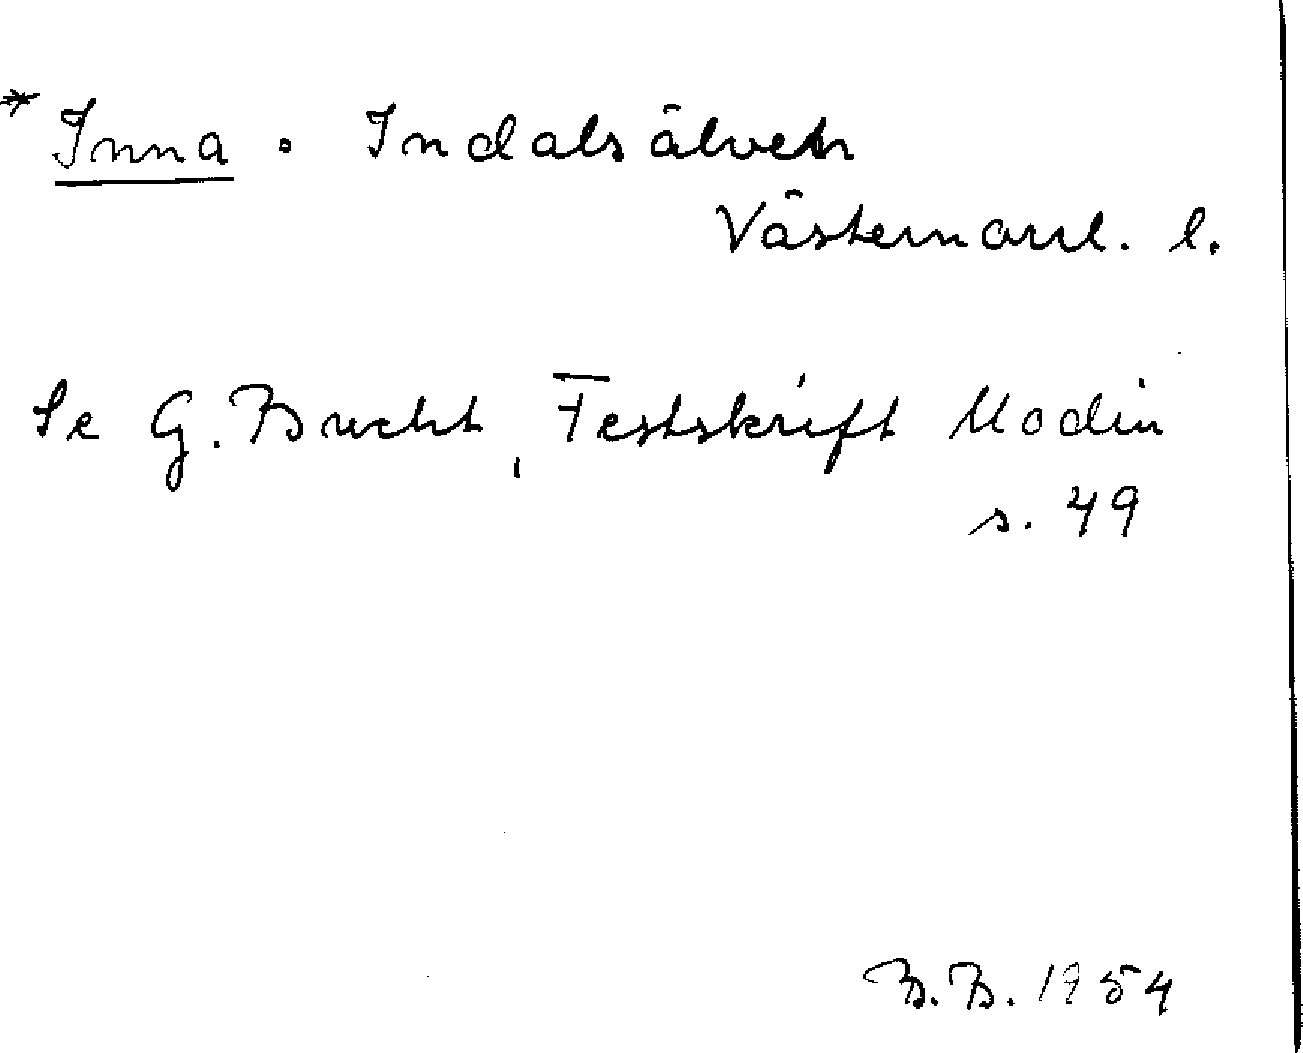 * Inna . Indalsälven
Västernorrl. l.
Se G. Bucht, Festskrift Modin
s. 49
B.B. 1954